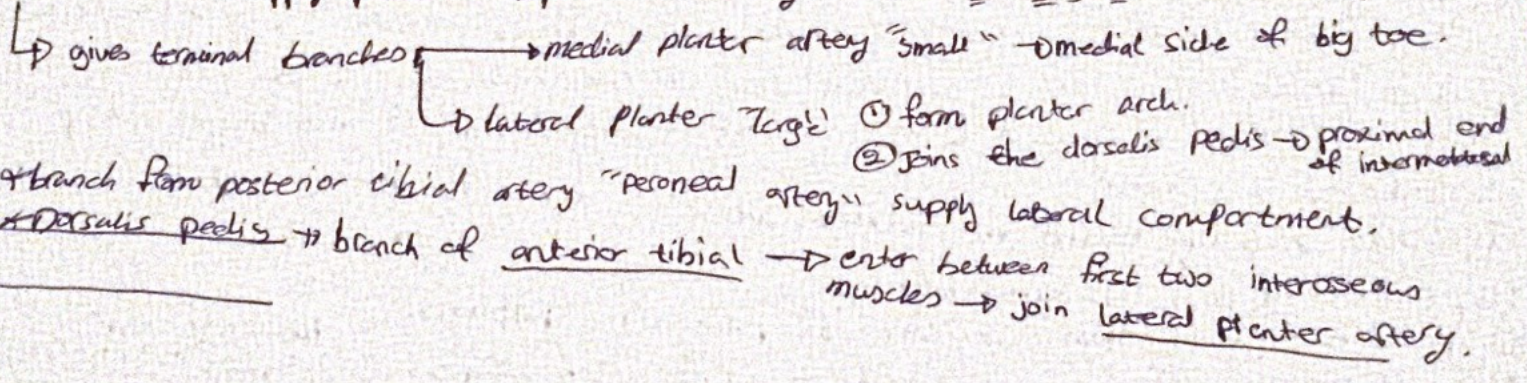 ↳ gives terminal branches → medial planter artery "small" → medial side of big toe.
↳ lateral planter "large" ① form planter arch.
② Joins the dorsalis pedis → proximal end
of intermetatasal
*branch from posterior tibial artery "peroneal artery" supply lateral compartment.
*Dorsalis pedis → branch of anterior tibial → enter between first two interosseous
muscles → join lateral planter artery.